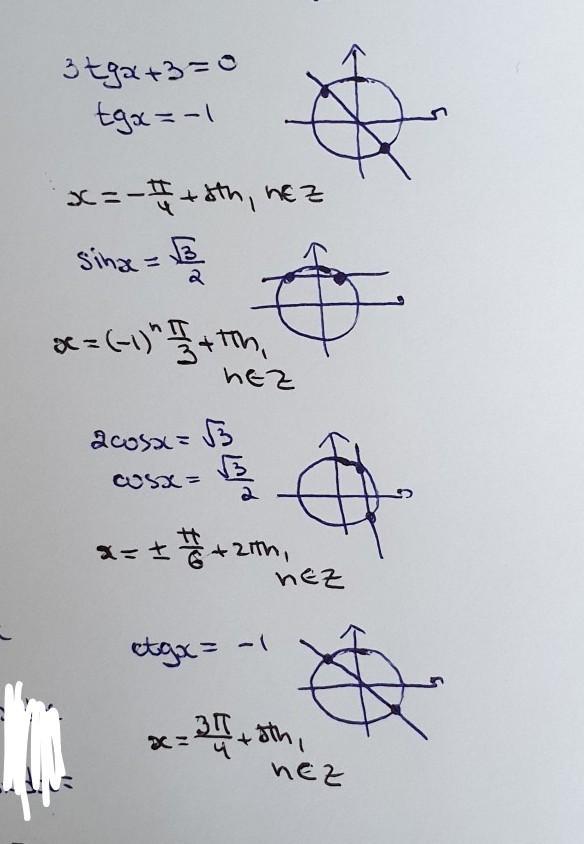 3tgx+3=0
tgx = -1
x = -π/4 + πn, n∈Z
sinx = √3/2
x = (-1)ⁿ π/3 + πn,
n∈Z
2cosx = √3
cosx = √3/2
x = ± π/6 + 2πn,
n∈Z
ctgx = -1
x = 3π/4 + πn,
n∈Z